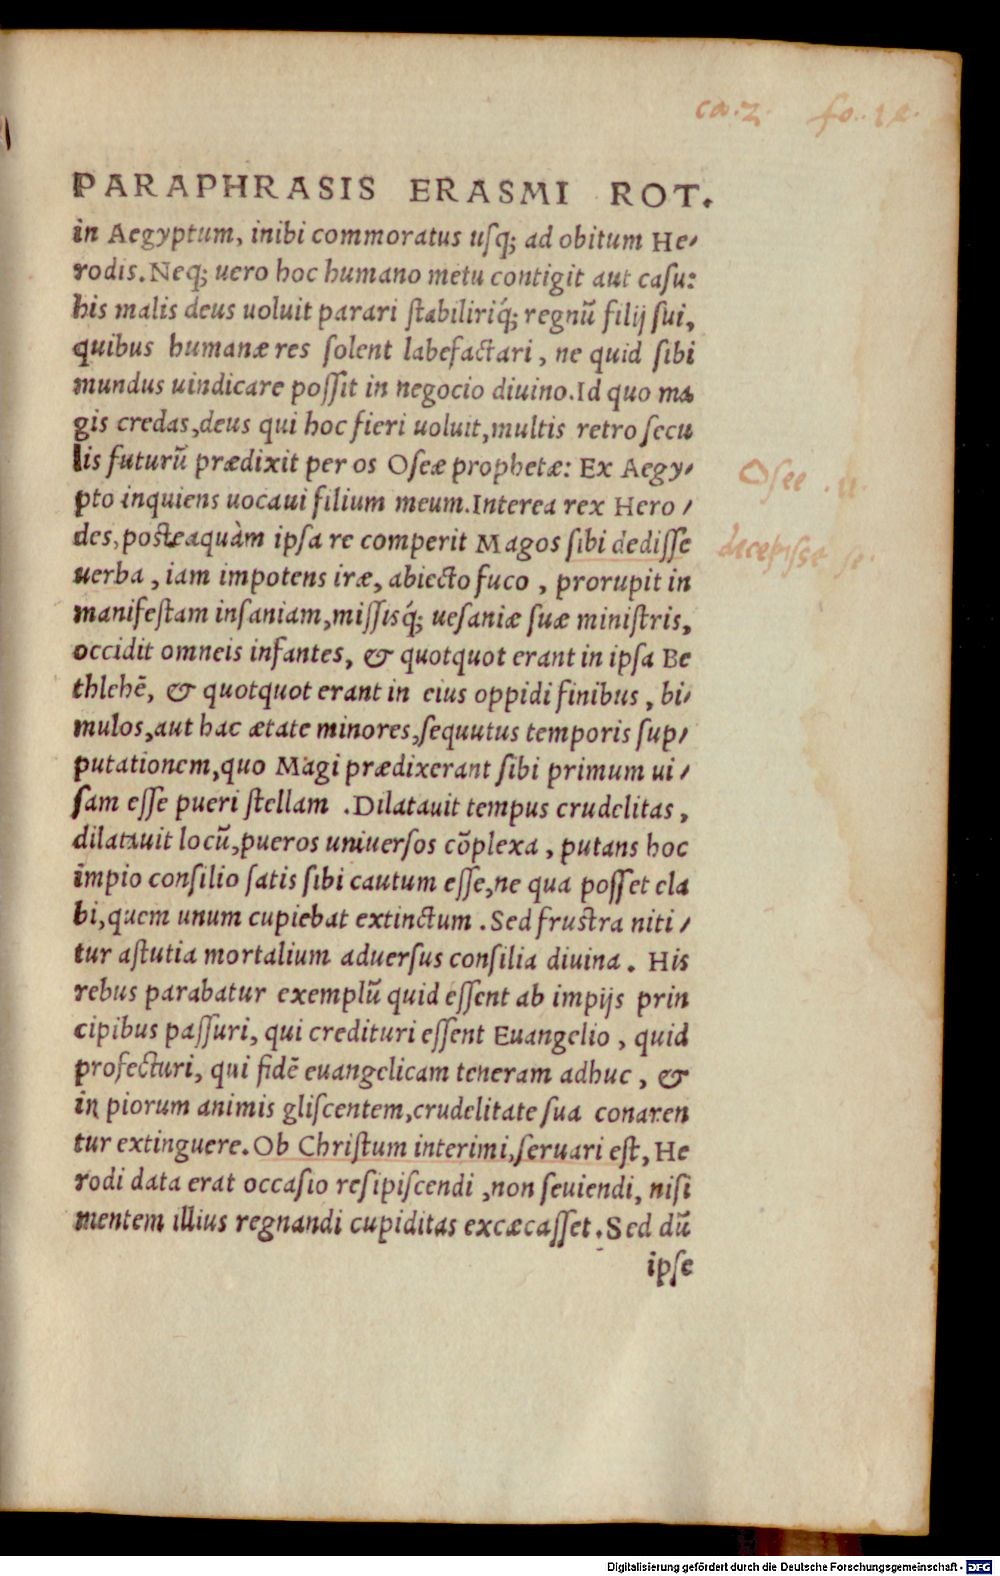 ca. 2. fo.
PARAPHRASIS ERASMI ROT.
in Aegyptum, inibi commoratus uſq; ad obitum He⸗
rodis. Neq; uero hoc humano metu contigit aut caſu:
his malis deus uoluit parari ſtabiliriq́; regnū filij ſui,
quibus humanæ res ſolent labefactari, ne quid ſibi
mundus uindicare poſſit in negocio diuino. Id quo ma
gis credas, deus qui hoc fieri uoluit, multis retro ſecu
lis futurū prædixit per os Oſeæ prophetæ: Ex Aegy⸗
Oſee . 11.
pto inquiens uocaui filium meum. Interea rex Hero⸗
des, posteaquàm ipſa re comperit Magos ſibi dediſſe
decepiſſe ſe.
uerba, iam impotens iræ, abiecto fuco, prorupit in
manifeſtam inſaniam, miſſisq́; ueſaniæ ſuæ miniſtris,
occidit omneis infantes, & quotquot erant in ipſa Be
thlehē, & quotquot erant in eius oppidi finibus, bi⸗
mulos, aut hac ætate minores, ſequutus temporis ſup⸗
putationem, quo Magi prædixerant ſibi primum ui⸗
ſam eſſe pueri ſtellam . Dilatauit tempus crudelitas,
dilatauit locū, pueros uniuerſos cōplexa, putans hoc
impio conſilio ſatis ſibi cautum eſſe, ne qua poſſet ela
bi, quem unum cupiebat extinctum . Sed fruſtra niti⸗
tur aſtutia mortalium aduerſus conſilia diuina. His
rebus parabatur exemplū quid eſſent ab impijs prin
cipibus paſſuri, qui credituri eſſent Euangelio, quid
profecturi, qui fidē euangelicam teneram adhuc, &
in piorum animis gliſcentem, crudelitate ſua conaren
tur extinguere. Ob Chriſtum interimi, ſeruari eſt, He
rodi data erat occaſio reſipiſcendi, non ſeuiendi, niſi
mentem illius regnandi cupiditas excæcaſſet. Sed dū
ipſe
Digitalisierung gefördert durch die Deutsche Forschungsgemeinschaft - DFG